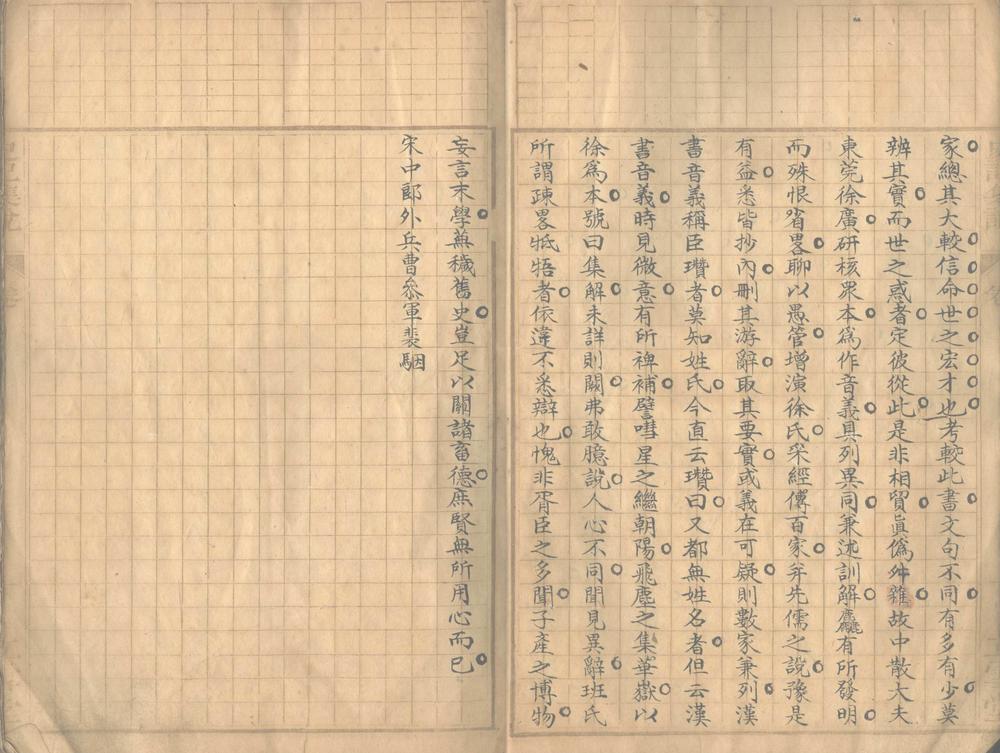 家總其大較信命世之宏才也考較此書文句不同有多有少莫
辨其實而世之惑者定彼從此是非相貿眞僞舛雜故中散大夫
東莞徐廣研核眾本爲作音義具列異同兼述訓解麤有所發明
而殊恨省畧聊以愚管增演徐氏采經傳百家幷先儒之說豫是
有益悉皆抄內刪其游辭取其要實或義在可疑則數家兼列漢
書音義稱臣瓚者莫知姓氏今直云瓚曰又都無姓名者但云漢
書音義時見微意有所裨補譬嘒星之繼朝陽飛塵之集華嶽以
徐爲本號曰集解未詳則闕弗敢臆說人心不同聞見異辭班氏
所謂疎畧牴牾者依違不悉辯也愧非胥臣之多聞子產之博物
妄言末學蕪穢舊史豈足以關諸畜德庶賢無所用心而已
宋中郎外兵曹叅軍裴駰